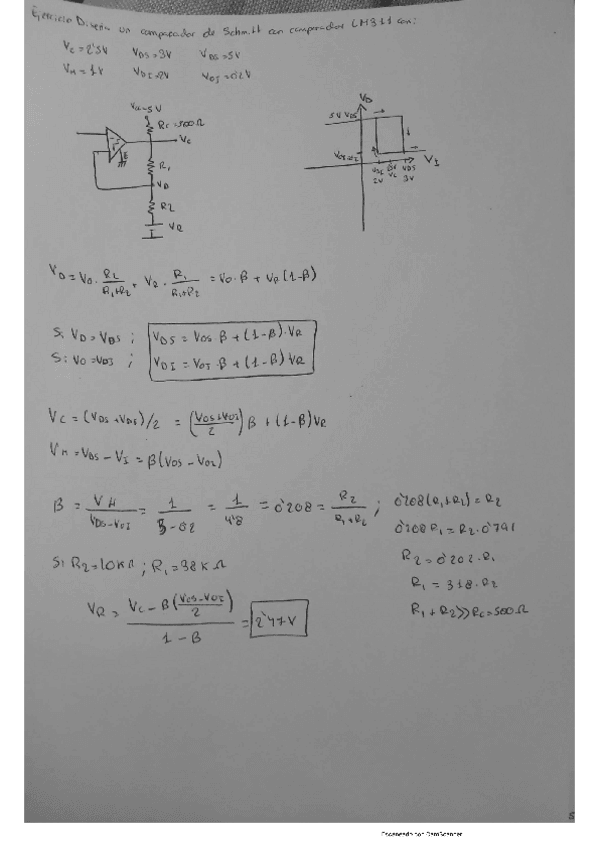 Ejercicio Diseña un comparador de Schmitt con comparador LM311 con:
Vc=2'5V VDS=3V VOS=5V
VH=1V VDI=2V VOI=0'2V
Vcc=5V
Rc=500Ω
Vc
R1
VD
R2
VR
VO
5V VOS
VOI=0'2
VI
VDI VC VDS
2V 3V
VD = VO · R2/(R1+R2) + VR · R1/(R1+R2) = VO·β + VR(1-β)
Si VD=VDS ; VDS = VOS β + (1-β)·VR
Si VO=VOI ; VDI = VOI·β + (1-β)VR
VC = (VDS+VDS)/2 = ((VOS+VOI)/2) β + (1-β)VR
VH = VDS - VI = β(VOS - VOI)
β = VH/(VOS-VOI) = 1/(5-0'2) = 1/4'8 = 0'208 = R2/(R1+R2) ; 0'208(R1+R1)=R2
0'208 R1 = R2·0'791
Si R2=10KΩ ; R1=38KΩ
R2=0'202·R1
R1 = 3'18·R2
VR = (VC - β((VOS-VOI)/2))/(1-β) = 2'47V
R1+R2>>Rc=500Ω
5
Escaneado con CamScanner